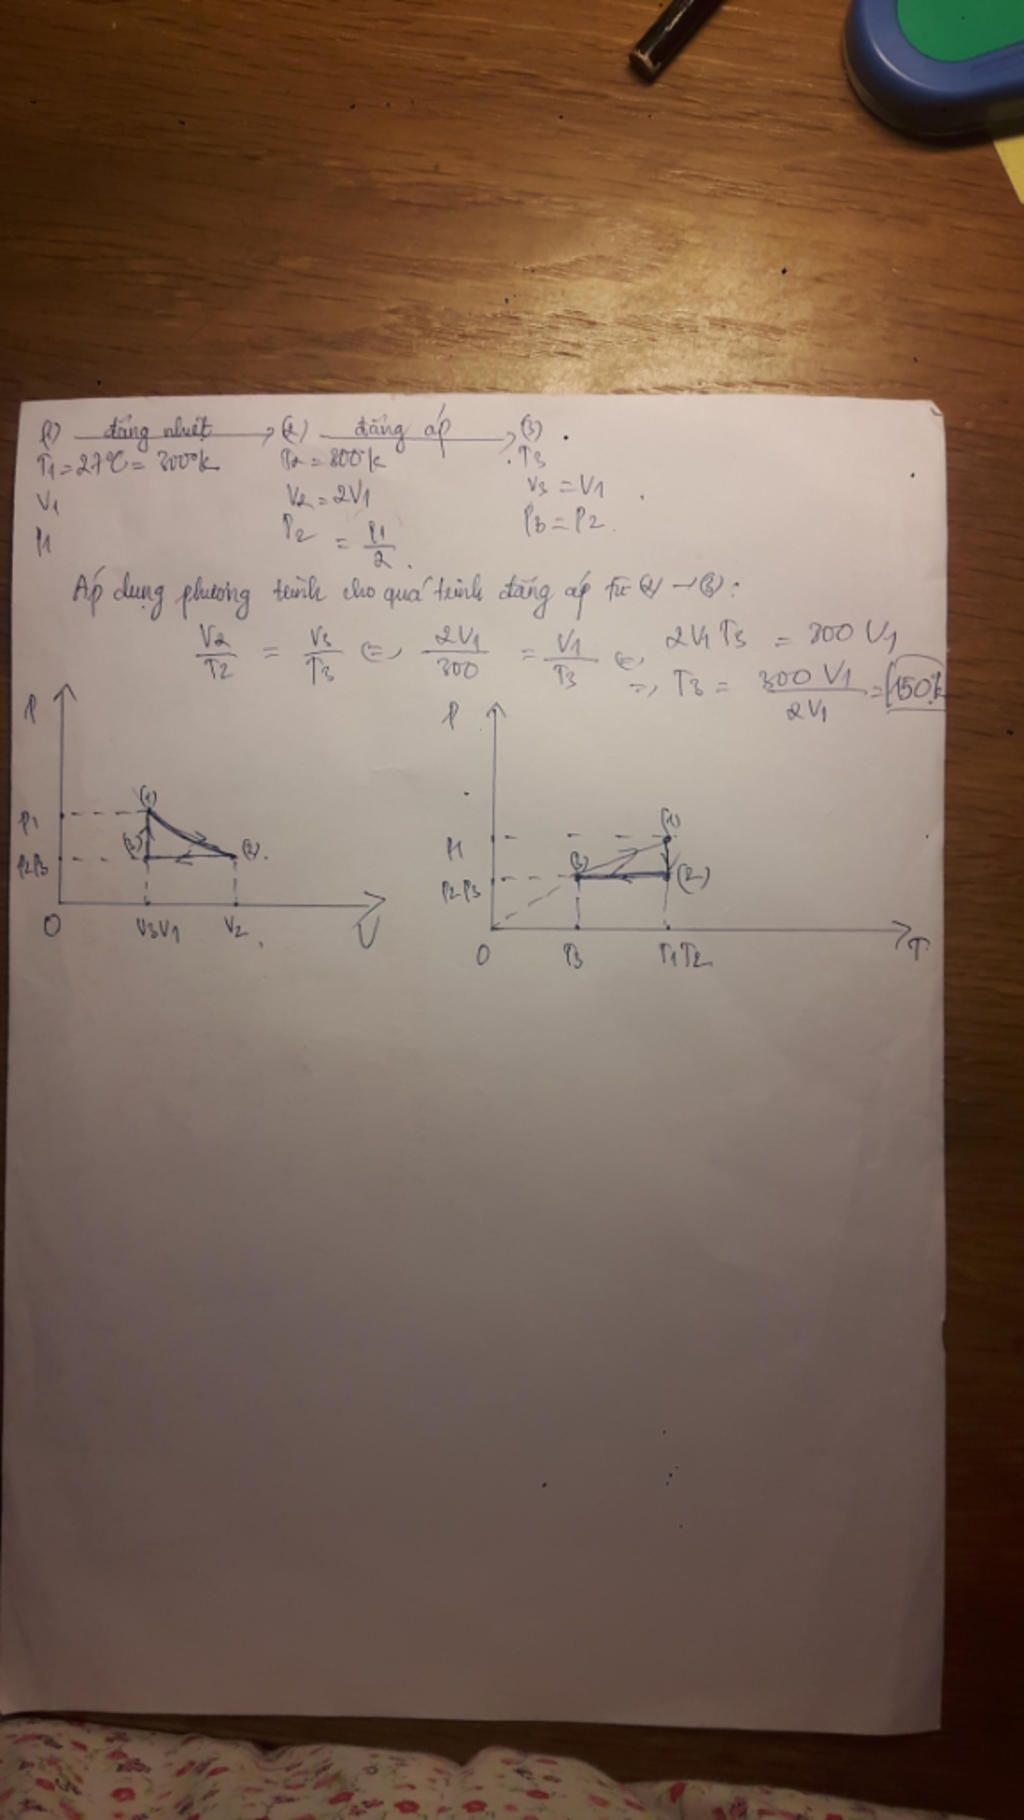 (1) đẳng nhiệt (2) đẳng áp (3)
T1 = 27°C = 300°k T2 = 300°k T3
V1 V2 = 2V1 V3 = V1
P1 P2 = P1/2 P3 = P2
Áp dụng phương trình cho quá trình đẳng áp từ (2) → (3):
V2/T2 = V3/T3 <=> 2V1/300 = V1/T3 <=> 2V1 T3 = 300 V1
=> T3 = 300 V1/2V1 = 150°k
P P
(1) (1)
P1 P1
(3) (2) (3) (2)
P2P3 P2P3
O V3V1 V2 V O T3 T1T2 T